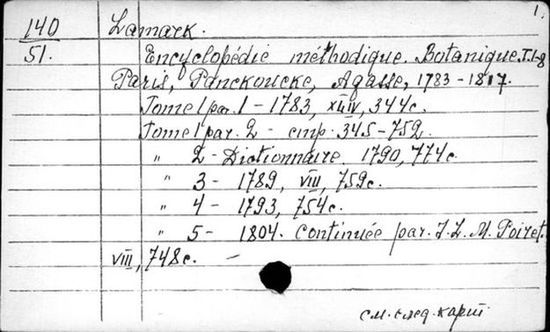 1.
140 Lamarck.
51. Encyclopédie méthodique. Botanique. T. 1-8
Paris, Panckoucke, Agasse, 1783-1817.
Tome 1 par. 1 - 1783, XLIV, 344 с.
Tome 1 par. 2 - стр. 345-752.
" 2 - Dictionnaire. 1790, 774 с.
" 3 - 1789, VIII, 759 с.
" 4 - 1793, 754 с.
" 5 - 1804. continuée par. J. L. M. Poiret.
VIII, 748 с. –
см. след. карт